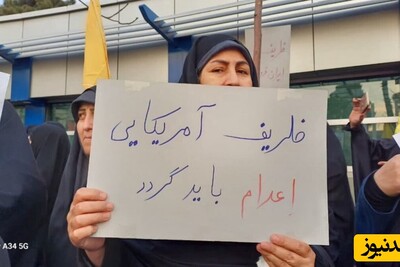 ظریف آمریکایی
اعدام باید گردد
ظریف
A34 5G
دنیوز